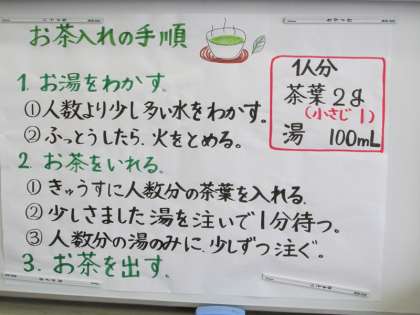 お茶入れの手順
1. お湯をわかす.
①人数より少し多い水をわかす。
②ふっとうしたら、火をとめる。
2. お茶をいれる.
①きゅうすに人数分の茶葉を入れる.
②少しさました湯を注いで1分待つ。
③人数分の湯のみに、少しずつ注ぐ。
3. お茶を出す.
1人分
茶葉2g
(小さじ1)
湯 100mL